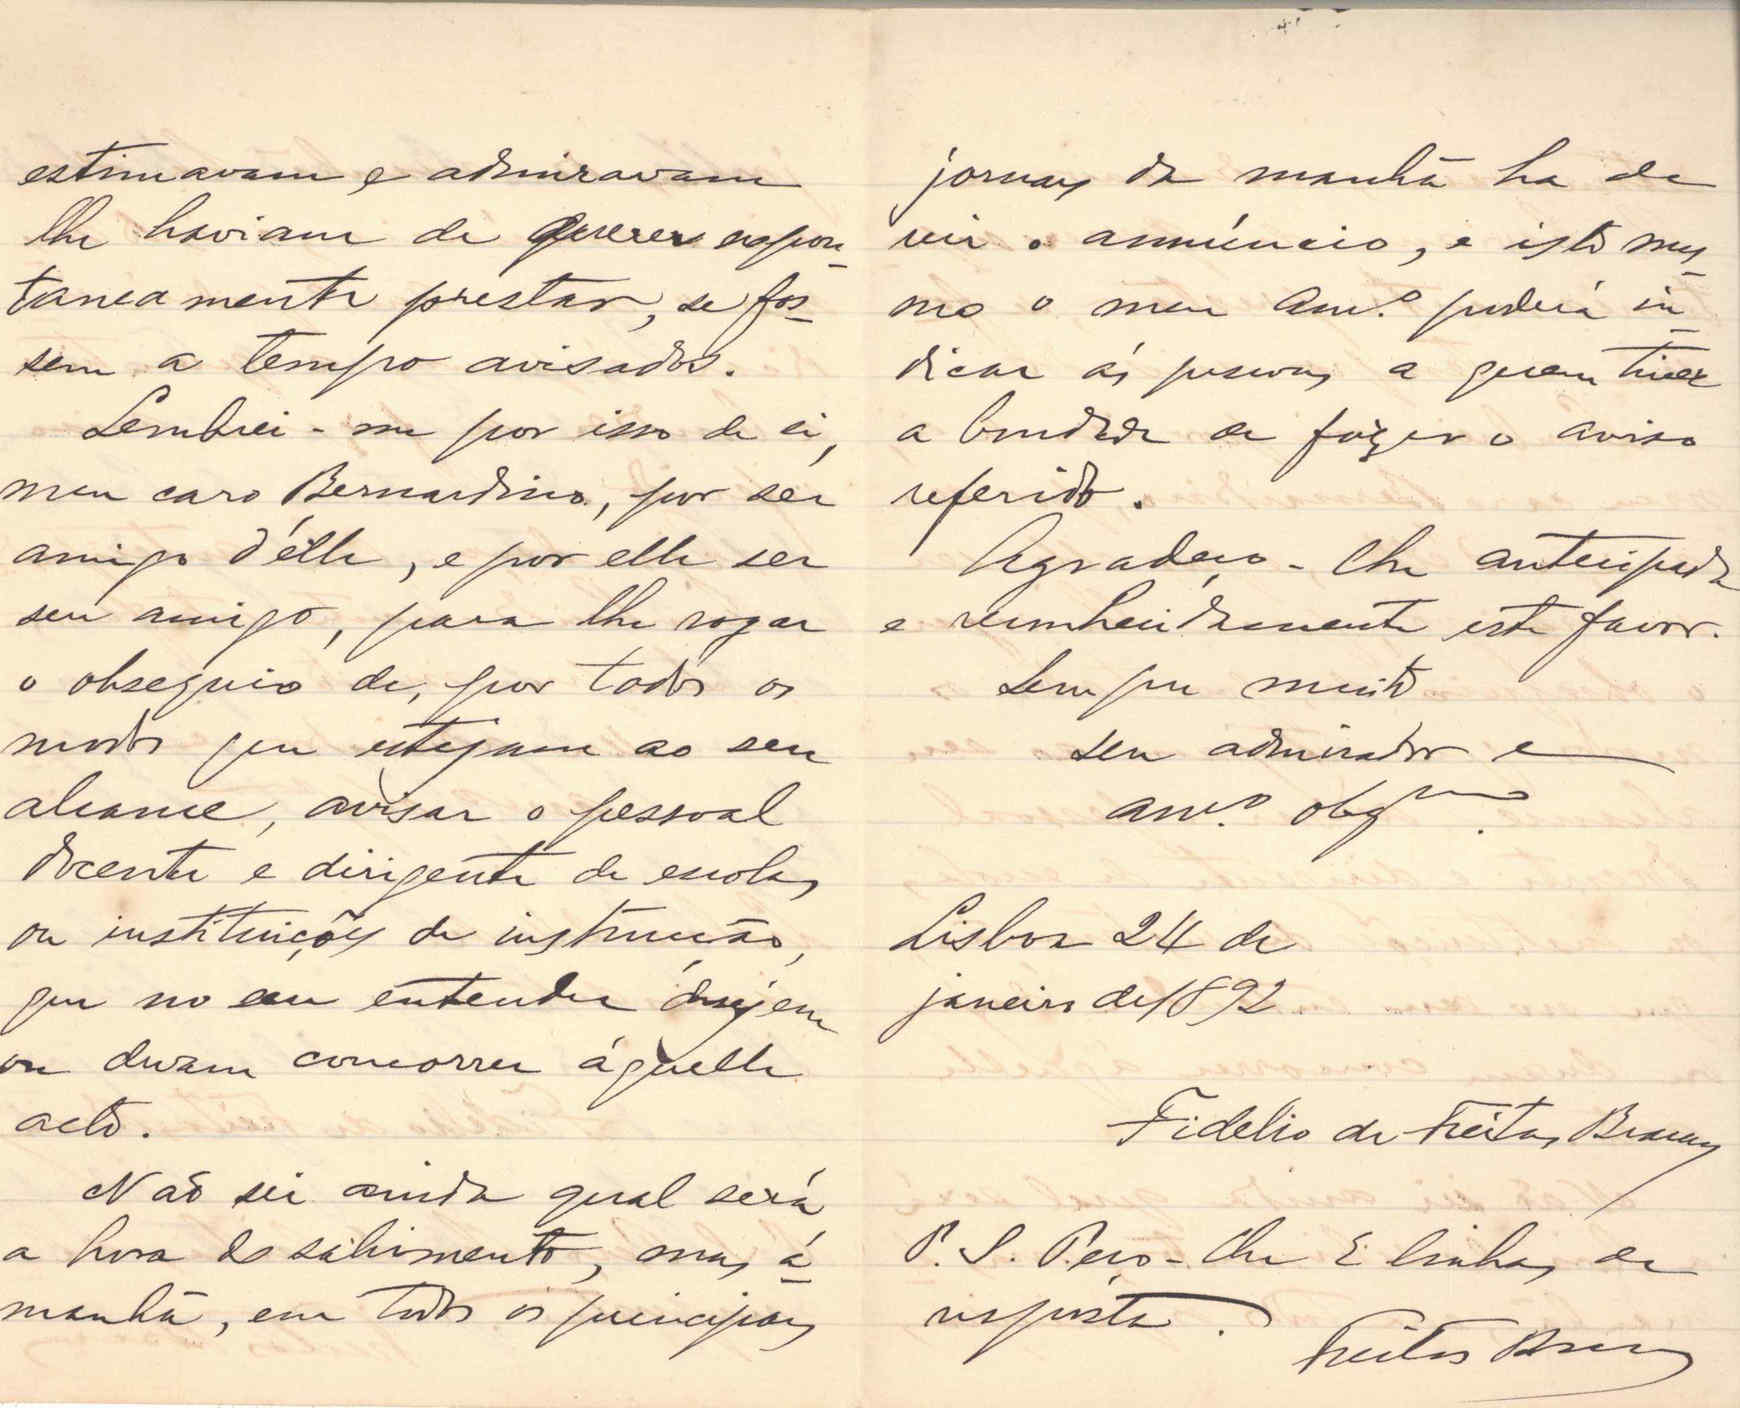 estimavam e admiravam
lhe haviam de querer espon-
taneamente prestar, se fos-
sem a tempo avisados.
Lembrei-me por isso de si,
meu caro Bernardino, por ser
amigo d'élle, e por elle ser
seu amigo, para lhe rogar
o obsequio de, por todos os
modos que estejam ao seu
alcance, avisar o pessoal
docente e dirigente de escolas
ou instituições de instrucção,
que no seu entender desejem
ou devam concorrer áquelle
acto.
Não sei ainda qual será
a hora do sahimento, mas á-
manhã, em todos os principaes
jornaes da manhã ha de
vir o annúncio, e isto mes-
mo o meu am.º poderá in-
dicar ás pessoas a quem tiver
a bondade de fazer o aviso
referido.
Agradeço-lhe antecipada
e reconhecidamente este favor.
Sempre muito
seu admirador e
am.º obg.mo
Lisboa 24 de
janeiro de 1892
Fidelio de Freitas Branco
P. S. Peço-lhe 2 linhas de
resposta.
Freitas Branco